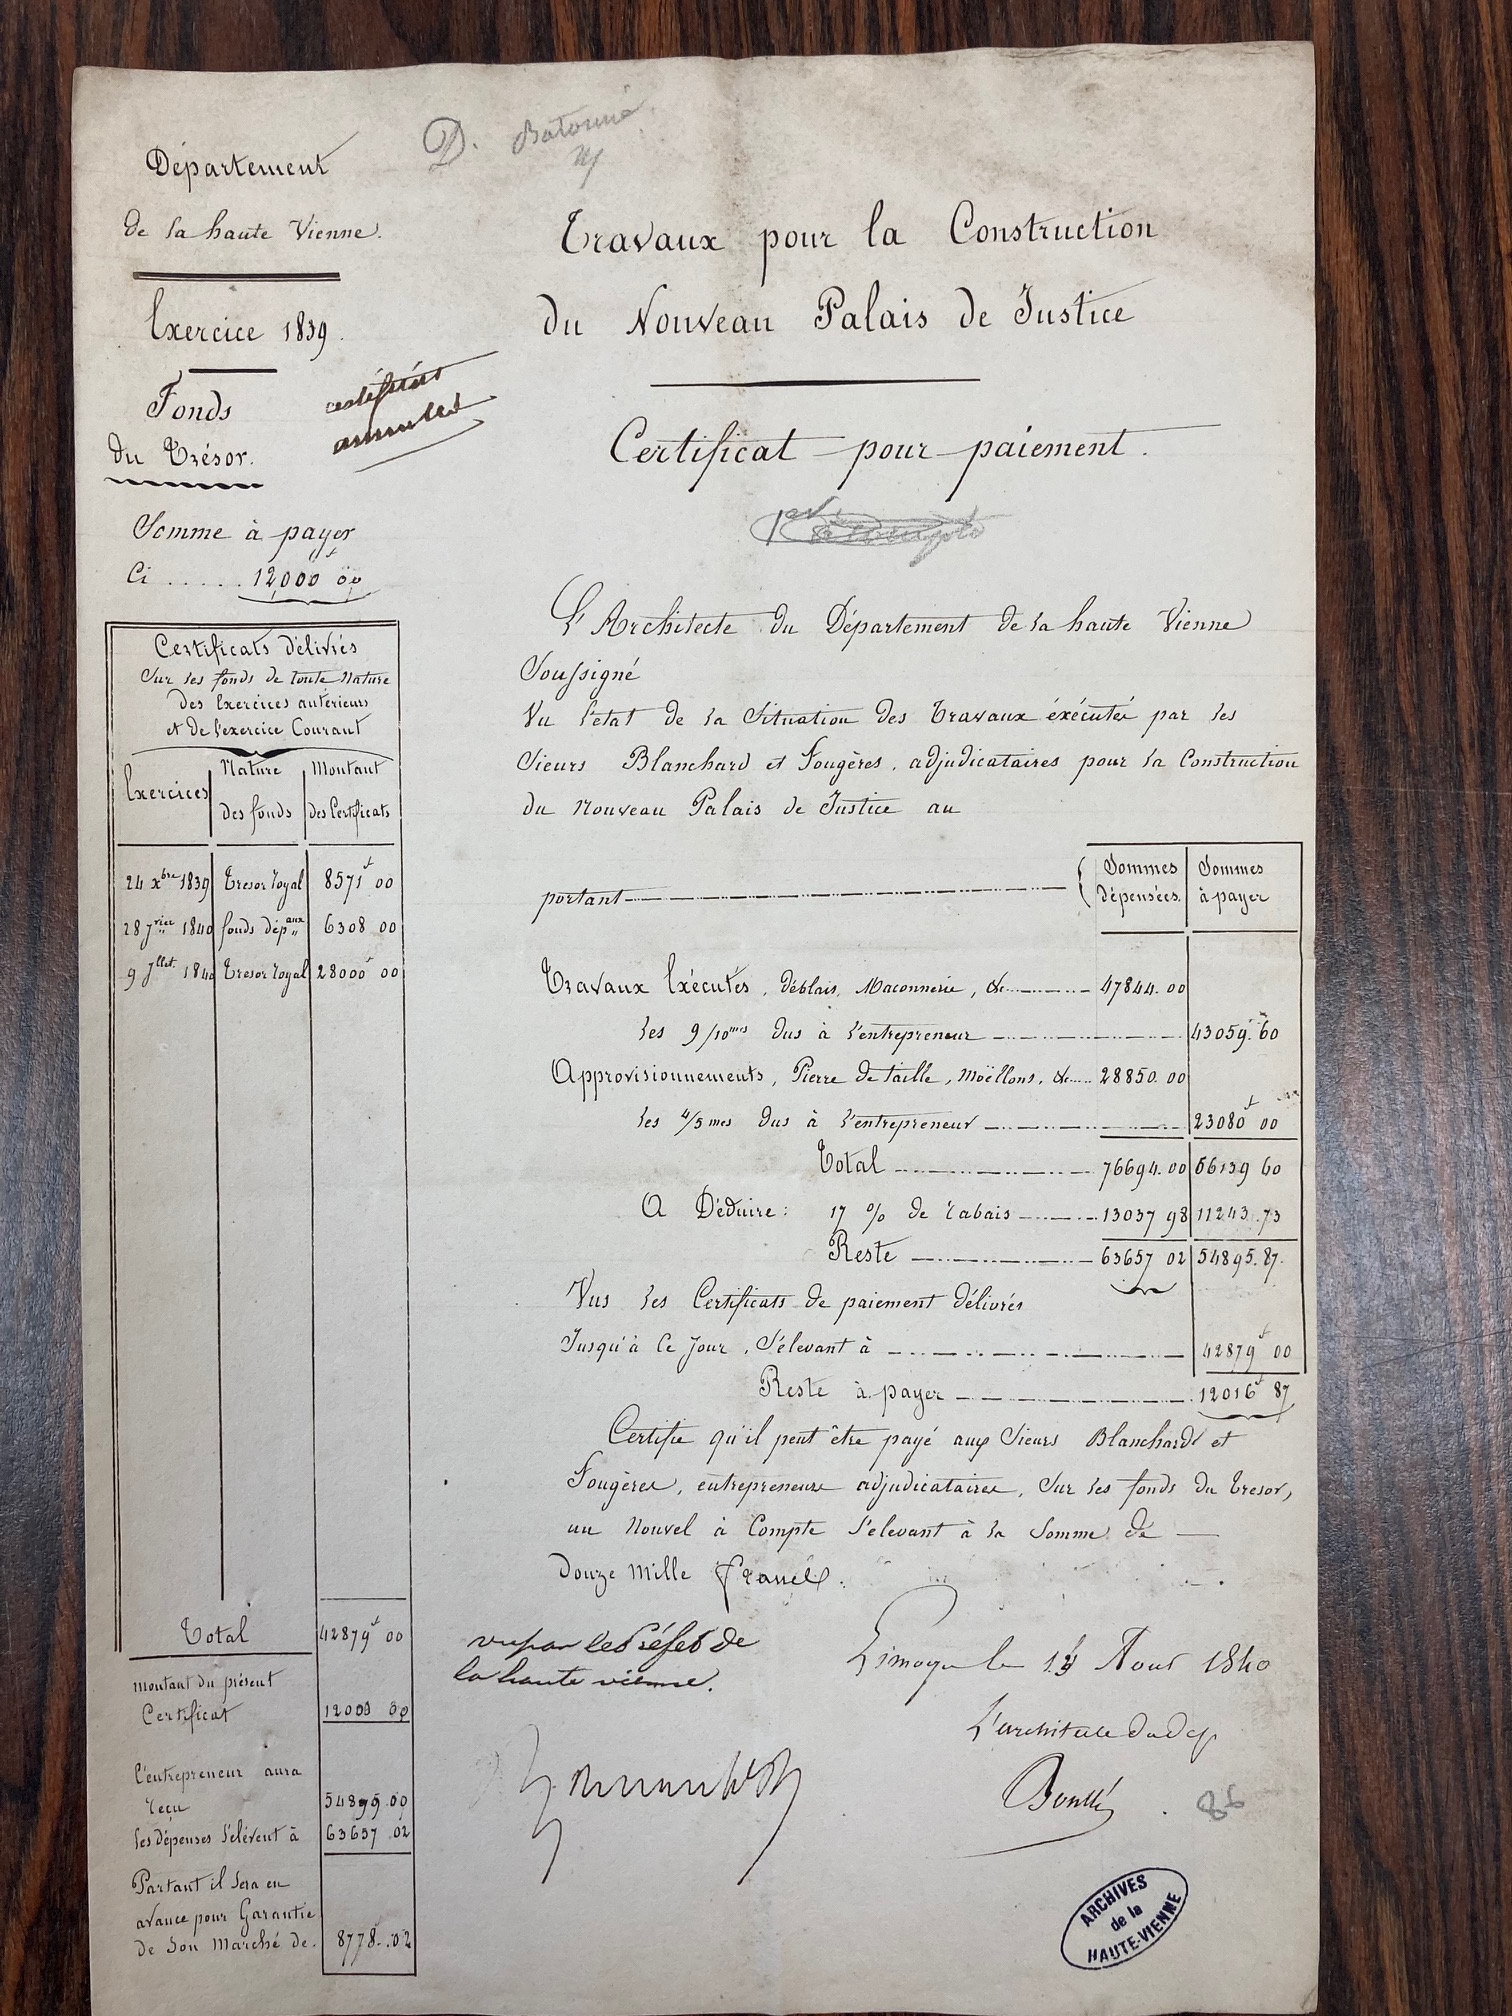 D.
Département
de la haute Vienne.
Exercice 1839.
Fonds
du Trésor.
annulés
Somme à payer
Ci ..... 12,000 00
Certificats délivrés
Sur les fonds de toute Nature
des Exercices antérieurs
et de l'exercice Courant
Exercices | Nature des fonds | Montant des Certificats
24 Xbre 1839 | Trésor royal | 8571f 00
28 Jvier 1840 | fonds dépaux | 6308 00
9 Jllet 1840 | Trésor royal | 28000f 00
Total 42879f 00
montant du présent
Certificat 12000 00
l'entrepreneur aura
reçu 54899.00
les dépenses s'élèvent à 63657 02
Partant il sera en
avance pour Garantie
de son Marché de. 8778f.02
Travaux pour la Construction
du Nouveau Palais de Justice
Certificat pour paiement.
L'Architecte du Département de la haute Vienne
Soussigné
Vu l'état de la Situation des Travaux éxécutés par les
Sieurs Blanchard et Fougères, adjudicataires pour la Construction
du Nouveau Palais de Justice au
portant | Sommes dépensées. | Sommes à payer
Travaux Exécutés, déblais, Maconnerie, &c 47844.00
les 9/10mes dus à l'entrepreneur 43059.60
Approvisionnements, Pierre de taille, Moëllons, &c 28850.00
les 4/5mes dus à l'entrepreneur 23080f 00
Total 76694.00 66139 60
A Déduire: 17 % de rabais 13037 98 11243.73
Reste 63657 02 54895.87.
Vus les Certificats de paiement délivrés
Jusqu'à Ce Jour, S'élevant à 42879f 00
Reste à payer 12016f 87
Certifie qu'il peut être payé aux Sieurs Blanchard et
Fougères, entrepreneurs adjudicataires, Sur les fonds du Tresor,
un Nouvel à Compte S'élevant à la Somme de
Douze Mille francs.
vu par le Préfet de
la haute vienne.
Limoges le 14 Aout 1840
L'architecte du dep
Boullé
86
ARCHIVES
de la
HAUTE-VIENNE